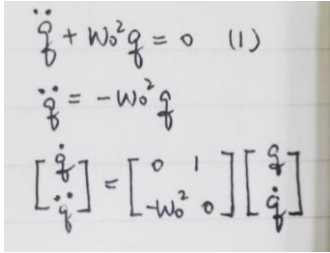 q̈ + W₀²q = 0 (1)
q̈ = -W₀²q
[q̇ q̈] = [0 1 -W₀² 0] [q q̇]